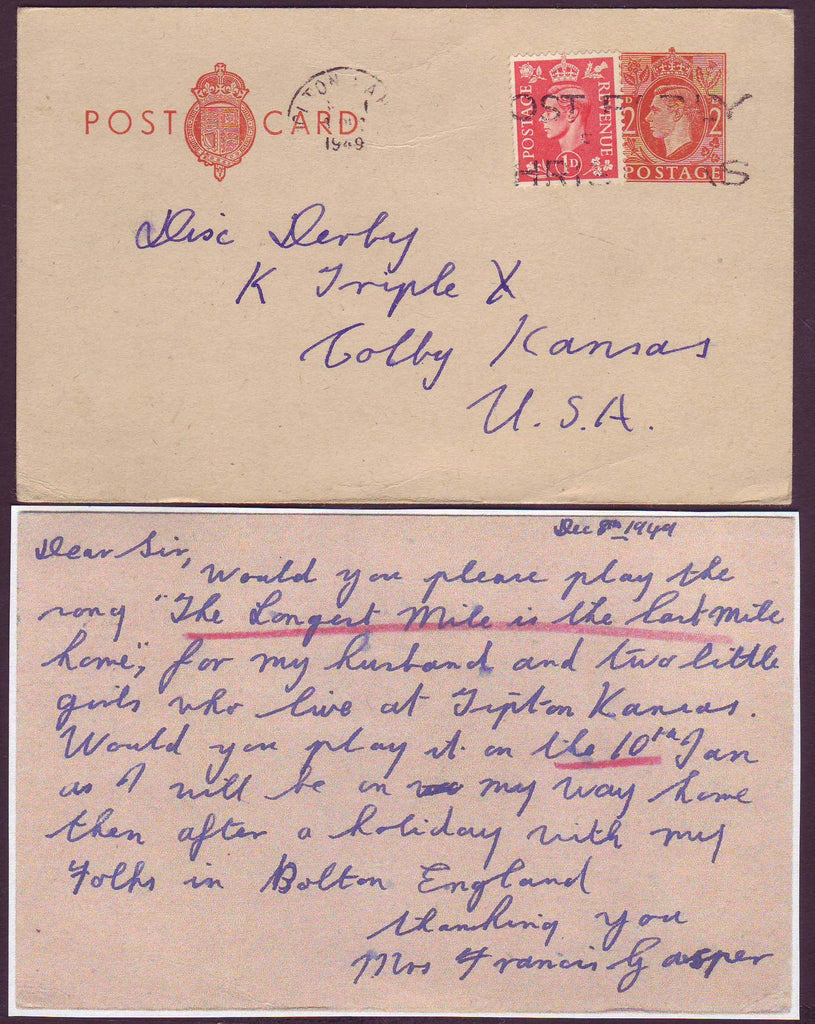 POST CARD
1949
POSTAGE REVENUE
1D
2D 2
POSTAGE
Disc Derby
K Triple X
Colby Kansas
U.S.A.
Dec 8th 1949
Dear Sir,
Would you please play the
song "The Longest Mile is the last mile
home", for my husband and two little
girls who live at Tipton Kansas.
Would you play it on the 10th Jan
as I will be on my way home
then after a holiday with my
Folks in Bolton England
thanking you
Mrs Francis Gasper